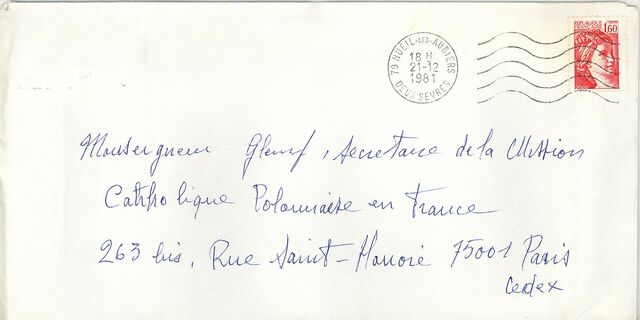 79 NUEIL-LES-AUBIERS
18 H
21-12
1981
DEUX SEVRES
1,60
Monseigneur , Secretaire de la Mission
Catholique Polonaise en France
263 bis, Rue Saint-Honoré 75001 Paris
Cedex